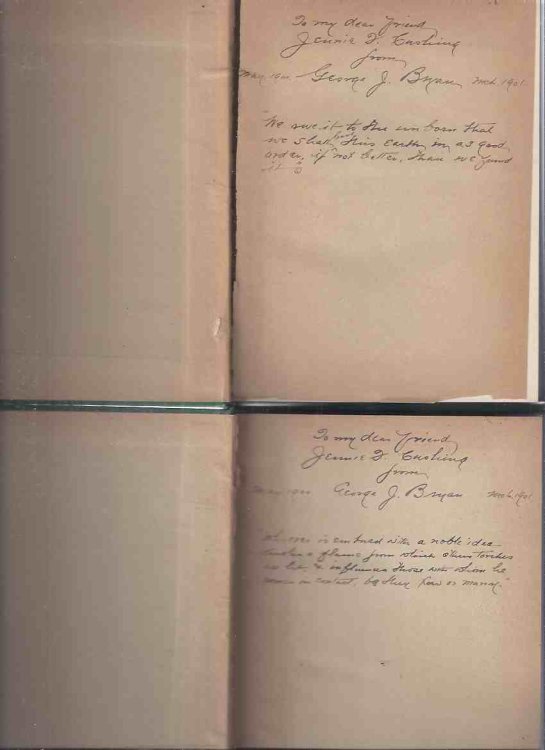 To my dear friend
Jennie F. Cushing
from
George J. Bryan Mch. 1901
"We owe it to the unborn that
we shall leave this Earth in as good
order, if not better, than we found
it"
To my dear friend
Jennie F. Cushing
from
George J. Bryan Mch. 1901
is imbued with a noble idea
a flame from which other torches
are lit & influences those with whom he
comes in contact, be they few or many."